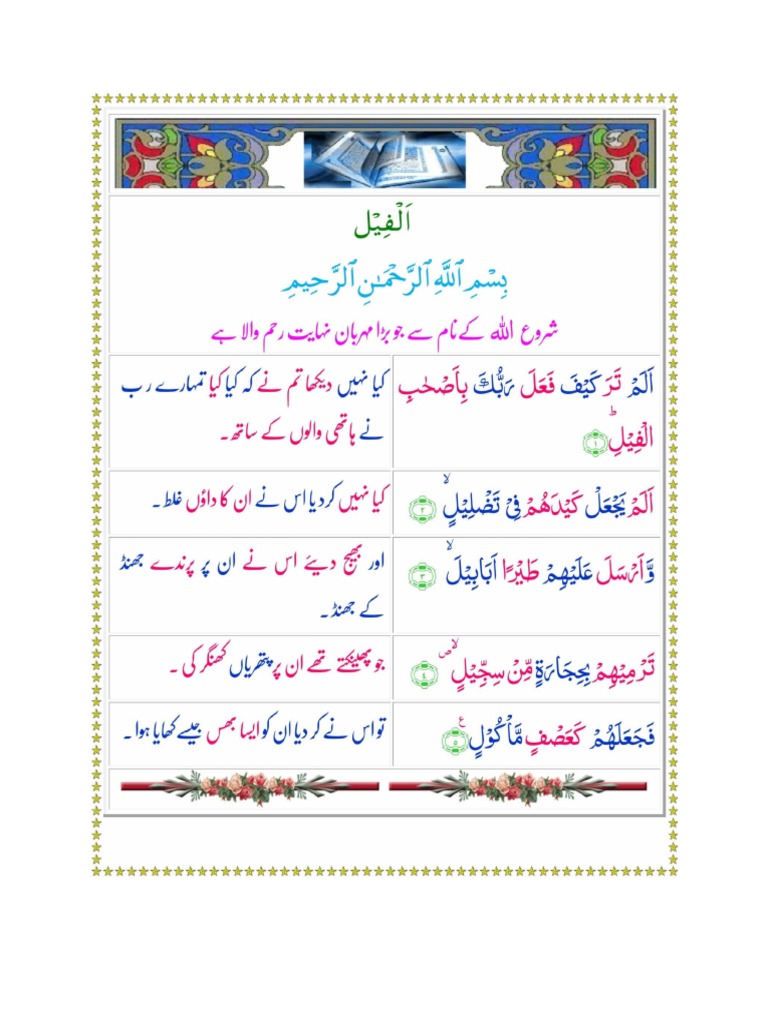 اَلْفِيْل
بِسْمِ ٱللَّهِ ٱلرَّحْمَـٰنِ ٱلرَّحِيمِ
شروع الله کے نام سے جو بڑا مہربان نہایت رحم والا ہے
اَلَمْ تَرَ كَيْفَ فَعَلَ رَبُّكَ بِاَصْحٰبِ
الْفِيْلِؕ ﴿۱﴾
کیا نہیں دیکھا تم نے کہ کیا کیا تمہارے رب
نے ہاتھی والوں کے ساتھ۔
اَلَمْ يَجْعَلْ كَيْدَهُمْ فِىْ تَضْلِيْلٍۙ ﴿۲﴾
کیا نہیں کردیا اس نے ان کا داؤں غلط۔
وَّاَرْسَلَ عَلَيْهِمْ طَيْرًا اَبَابِيْلَۙ ﴿۳﴾
اور بھیج دیئے اس نے ان پر پرندے جھنڈ
کے جھنڈ۔
تَرْمِيْهِمْ بِحِجَارَةٍ مِّنْ سِجِّيْلٍۙ ﴿٤﴾
جو پھینکتے تھے ان پر پتھریاں کھنگر کی۔
فَجَعَلَهُمْ كَعَصْفٍ مَّاْكُوْلٍ ﴿۵﴾
تو اس نے کر دیا ان کو ایسا بھس جیسے کھایا ہوا۔